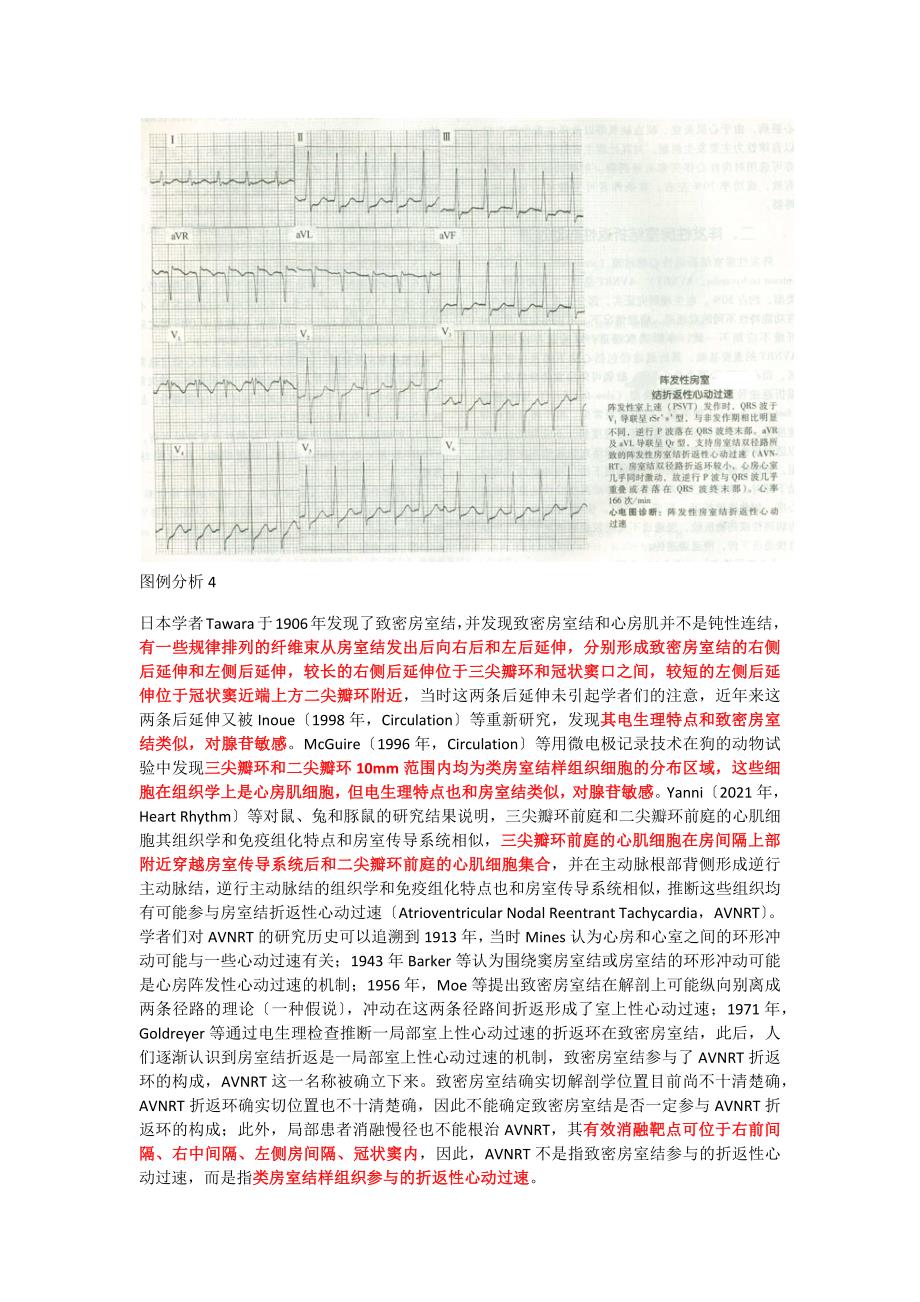 I II III
aVR aVL aVF
V1 V2 V3
V4 V5 V6
阵发性房室
结折返性心动过速
阵发性室上速（PSVT）发作时，QRS 波于
V1 导联呈 rSr's'型，与非发作期相比明显
不同，逆行 P 波落在 QRS 波终末部。aVR
及 aVL 导联呈 Qr 型，支持房室结双径路所
致的阵发性房室结折返性心动过速（AVN-
RT，房室结双径路折返环较小，心房心室
几乎同时激动，故逆行 P 波与 QRS 波几乎
重叠或者落在 QRS 波终末部）。心率
166 次/min
心电图诊断：阵发性房室结折返性心动
过速
图例分析 4
日本学者 Tawara 于 1906 年发现了致密房室结，并发现致密房室结和心房肌并不是钝性连结，
有一些规律排列的纤维束从房室结发出后向右后和左后延伸，分别形成致密房室结的右侧
后延伸和左侧后延伸，较长的右侧后延伸位于三尖瓣环和冠状窦口之间，较短的左侧后延
伸位于冠状窦近端上方二尖瓣环附近，当时这两条后延伸未引起学者们的注意，近年来这
两条后延伸又被 Inoue〔1998 年，Circulation〕等重新研究，发现其电生理特点和致密房室
结类似，对腺苷敏感。McGuire〔1996 年，Circulation〕等用微电极记录技术在狗的动物试
验中发现三尖瓣环和二尖瓣环 10mm 范围内均为类房室结样组织细胞的分布区域，这些细
胞在组织学上是心房肌细胞，但电生理特点也和房室结类似，对腺苷敏感。Yanni〔2021 年，
Heart Rhythm〕等对鼠、兔和豚鼠的研究结果说明，三尖瓣环前庭和二尖瓣环前庭的心肌细
胞其组织学和免疫组化特点和房室传导系统相似，三尖瓣环前庭的心肌细胞在房间隔上部
附近穿越房室传导系统后和二尖瓣环前庭的心肌细胞集合，并在主动脉根部背侧形成逆行
主动脉结，逆行主动脉结的组织学和免疫组化特点也和房室传导系统相似，推断这些组织均
有可能参与房室结折返性心动过速〔Atrioventricular Nodal Reentrant Tachycardia，AVNRT〕。
学者们对 AVNRT 的研究历史可以追溯到 1913 年，当时 Mines 认为心房和心室之间的环形冲
动可能与一些心动过速有关；1943 年 Barker 等认为围绕窦房室结或房室结的环形冲动可能
是心房阵发性心动过速的机制；1956 年，Moe 等提出致密房室结在解剖上可能纵向别离成
两条径路的理论〔一种假说〕，冲动在这两条径路间折返形成了室上性心动过速；1971 年，
Goldreyer 等通过电生理检查推断一局部室上性心动过速的折返环在致密房室结，此后，人
们逐渐认识到房室结折返是一局部室上性心动过速的机制，致密房室结参与了 AVNRT 折返
环的构成，AVNRT 这一名称被确立下来。致密房室结确实切解剖学位置目前尚不十清楚确，
AVNRT 折返环确实切位置也不十清楚确，因此不能确定致密房室结是否一定参与 AVNRT 折
返环的构成；此外，局部患者消融慢径也不能根治 AVNRT，其有效消融靶点可位于右前间
隔、右中间隔、左侧房间隔、冠状窦内，因此，AVNRT 不是指致密房室结参与的折返性心
动过速，而是指类房室结样组织参与的折返性心动过速。